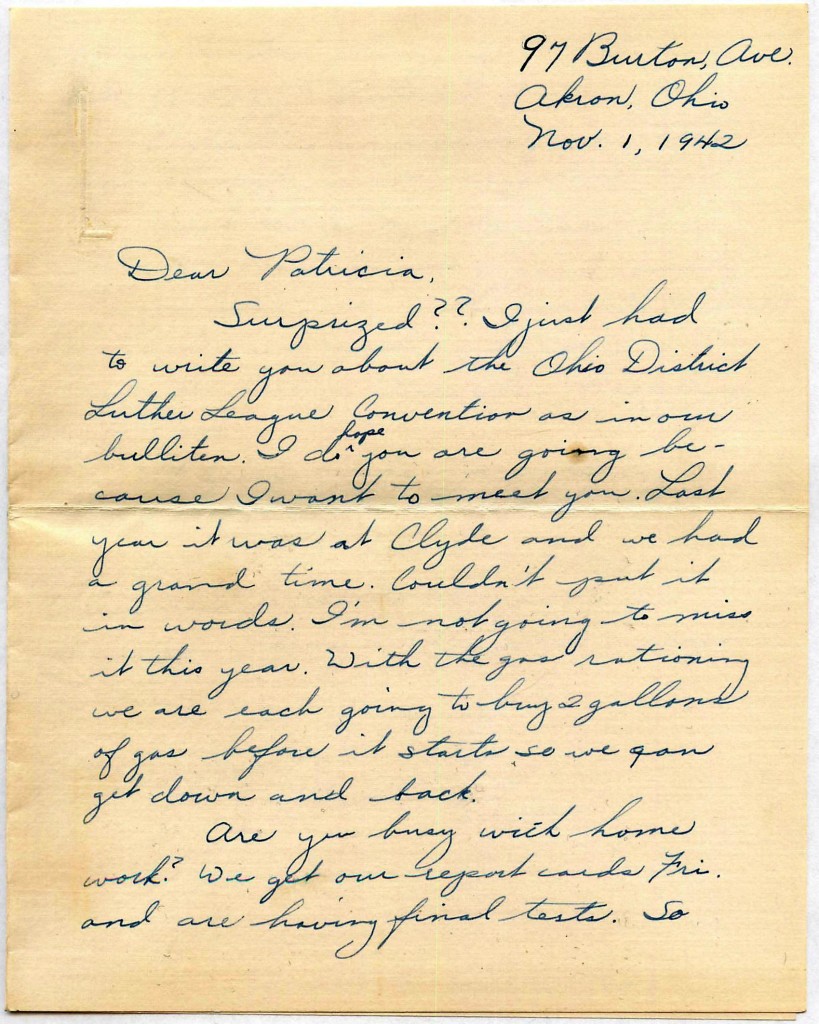 97 Burton, Ave.
Akron, Ohio
Nov. 1, 1942
Dear Patricia,
Surprized??. I just had
to write you about the Ohio District
Luther League Convention as in our
bulliten. I do ^hope you are going be-
cause I want to meet you. Last
year it was at Clyde and we had
a grand time. Couldn't put it
in words. I'm not going to miss
it this year. With the gas rationing
we are each going to buy 2 gallons
of gas before it starts so we can
get down and back.
Are you busy with home
work? We get our report cards Fri.
and are having final tests. So